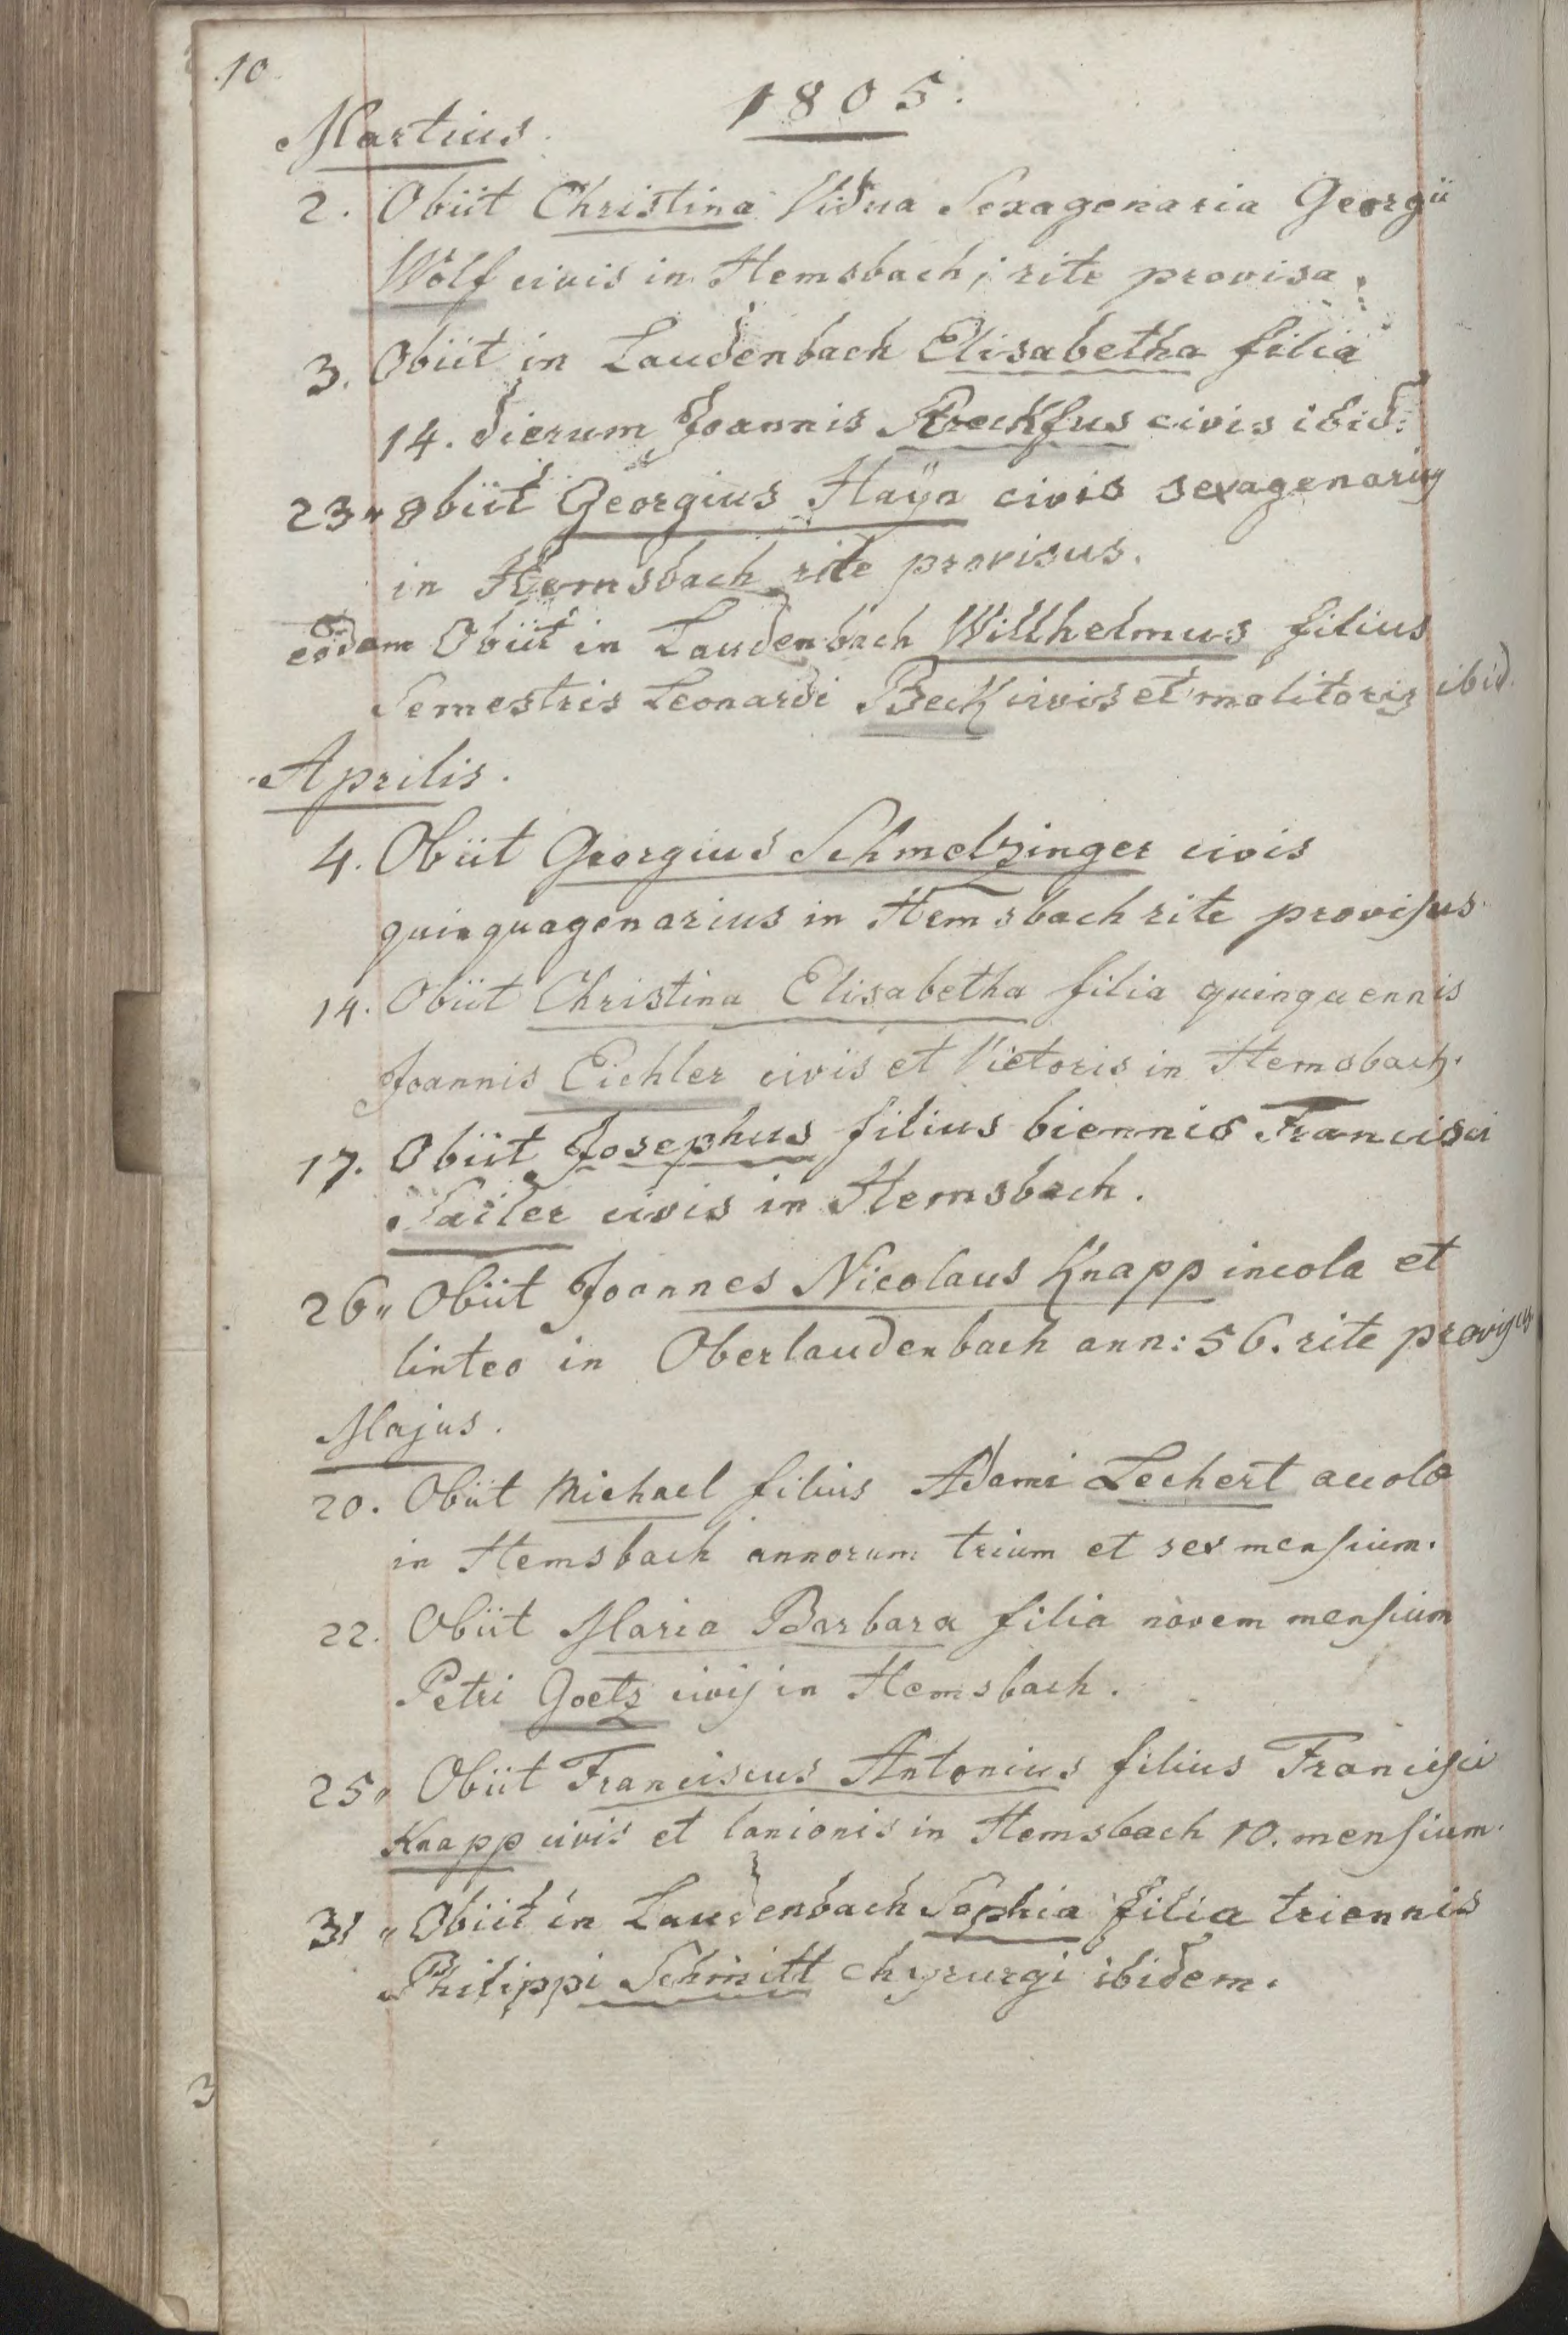 10
1805.
Martius.
2. Obiit Christina Vidua Sexagenaria Georgii
Wolf civis in Hemsbach, rite provisa.
3. Obiit in Laudenbach Elisabetha filia
14. dierum Joannis civis ibid:
23„ Obiit Georgius Haÿn civis sexagenarius
in Hemsbach rite provisus.
eodem Obiit in Laudenbach Willhelmus filius
Semestris Leonardi Beck civis et molitoris ibid.
Aprilis.
4. Obiit Georgius Schmelzinger civis
quinquagenarius in Hemsbach rite provisus.
14. Obiit Christina Elisabetha filia quinquennis
Joannis Eichler civis et Vietoris in Hemsbach.
17. Obiit Josephus filius biennis Francisci
Sailer civis in Hemsbach.
26„ Obiit Joannes Nicolaus Knapp incola et
linteo in Oberlaudenbach ann: 56. rite provisus
Majus.
20. Obiit Michael filius Adami Lechert accola
in Hemsbach annorum trium et sex mensium.
22. Obiit Maria Barbara filia novem mensium
Petri Goetz civis in Hemsbach.
25„ Obiit Franciscus Antonius filius Francisci
Knapp civis et lanionis in Hemsbach 10. mensium.
31„ Obiit in Laudenbach Sophia filia triennis
Philippi Schmitt chyrurgi ibidem.
3